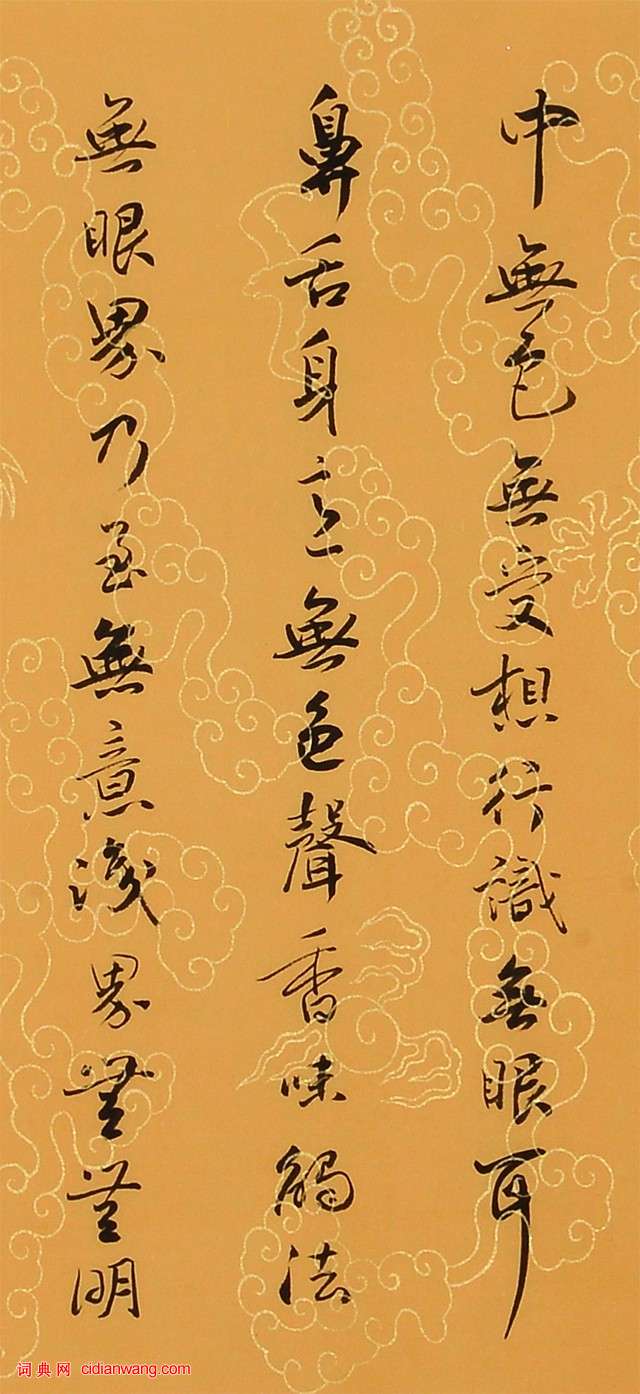 中無色無受想行識無眼耳
鼻舌身意無色聲香味觸法
無眼界乃至無意識界無無明
词典网 cidianwang.com